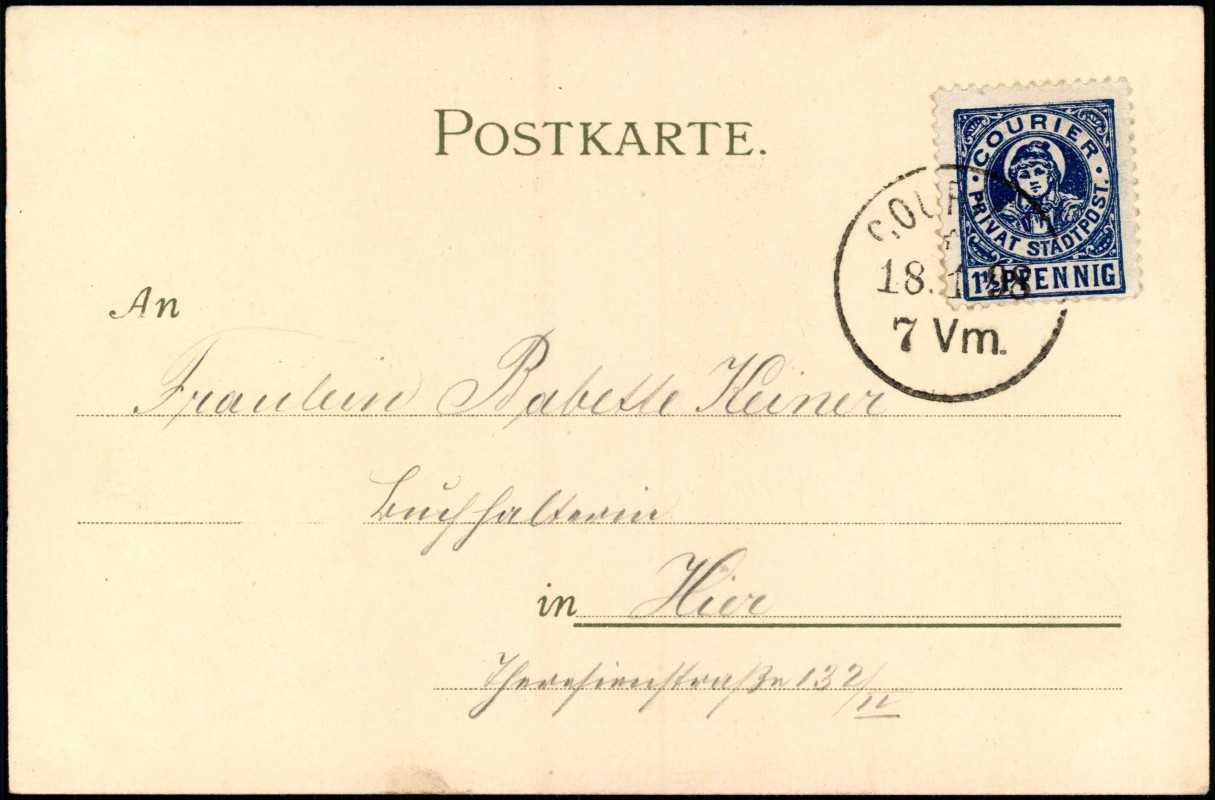 POSTKARTE.
COURIER
PRIVAT STADTPOST.
1½ PFENNIG
COUR
18.1.98
7 Vm.
An
Fraulein Babette Keiner
Buchhalterin
in Hier
Theresienstraße 132/II